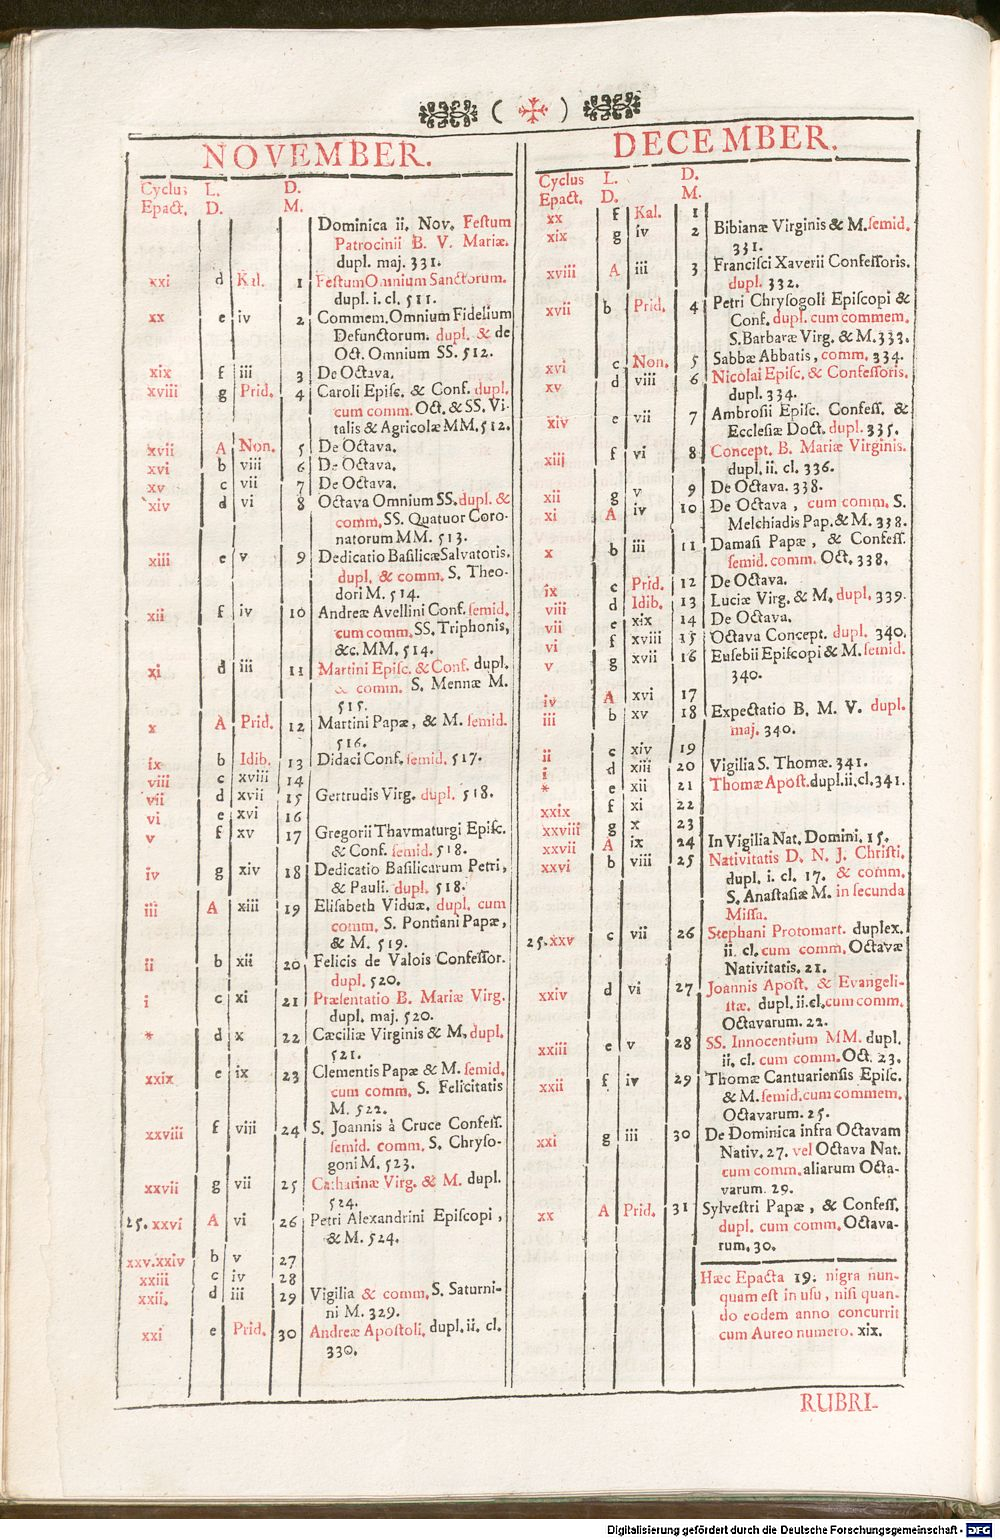 ( )
NOVEMBER.
Cyclus L. D.
Epact. D. M.
Dominica ii. Nov. Feſtum
Patrocinii B. V. Mariæ.
dupl. maj. 331.
xxi d Kal. 1 Feſtum Omnium Sanctorum.
dupl. i. cl. 511.
xx e iv 2 Commem. Omnium Fidelium
Defunctorum. dupl. & de
Oct. Omnium SS. 512.
xix f iii 3 De Octava.
xviii g Prid. 4 Caroli Epiſc. & Conf. dupl.
cum comm. Oct. & SS. Vi-
talis & Agricolæ MM. 512.
xvii A Non. 5 De Octava.
xvi b viii 6 De Octava.
xv c vii 7 De Octava.
xiv d vi 8 Octava Omnium SS. dupl. &
comm. SS. Quatuor Coro-
natorum MM. 513.
xiii e v 9 Dedicatio Baſilicæ Salvatoris.
dupl. & comm. S. Theo-
dori M. 514.
xii f iv 10 Andreæ Avellini Conf. ſemid.
cum comm. SS. Triphonis,
&c. MM. 514.
xi d iii 11 Martini Epiſc. & Conf. dupl.
& comm. S. Mennæ M.
515.
x A Prid. 12 Martini Papæ, & M. ſemid.
516.
ix b Idib. 13 Didaci Conf. ſemid. 517.
viii c xviii 14
vii d xvii 15 Gertrudis Virg. dupl. 518.
vi e xvi 16
v f xv 17 Gregorii Thavmaturgi Epiſc.
& Conf. ſemid. 518.
iv g xiv 18 Dedicatio Baſilicarum Petri,
& Pauli. dupl. 518.
iii A xiii 19 Eliſabeth Viduæ. dupl. cum
comm. S. Pontiani Papæ,
& M. 519.
ii b xii 20 Felicis de Valois Confeſſor.
dupl. 520.
i c xi 21 Præſentatio B. Mariæ Virg.
dupl. maj. 520.
* d x 22 Cæciliæ Virginis & M. dupl.
521.
xxix e ix 23 Clementis Papæ & M. ſemid.
cum comm. S. Felicitatis
M. 522.
xxviii f viii 24 S. Joannis à Cruce Confeſſ.
ſemid. comm. S. Chryſo-
goni M. 523.
xxvii g vii 25 Catharinæ Virg. & M. dupl.
524.
25. xxvi A vi 26 Petri Alexandrini Epiſcopi,
& M. 524.
xxv.xxiv b v 27
xxiii c iv 28
xxii. d iii 29 Vigilia & comm. S. Saturni-
ni M. 329.
xxi e Prid. 30 Andreæ Apoſtoli. dupl. ii. cl.
330.
DECEMBER.
Cyclus L. D.
Epact. D. M.
xx f Kal. 1
xix g iv 2 Bibianæ Virginis & M. ſemid.
331.
xviii A iii 3 Franciſci Xaverii Confeſſoris.
dupl. 332.
xvii b Prid. 4 Petri Chryſogoli Epiſcopi &
Conf. dupl. cum commem.
S. Barbaræ Virg. & M. 333.
xvi c Non. 5 Sabbæ Abbatis, comm. 334.
xv d viii 6 Nicolai Epiſc. & Confeſſoris.
dupl. 334.
xiv e vii 7 Ambroſii Epiſc. Confeſſ. &
Eccleſiæ Doct. dupl. 335.
xiij f vi 8 Concept. B. Mariæ Virginis.
dupl. ii. cl. 336.
xii g v 9 De Octava. 338.
xi A iv 10 De Octava, cum comm. S.
Melchiadis Pap. & M. 338.
x b iii 11 Damaſi Papæ, & Confeſſ.
ſemid. comm. Oct. 338.
ix c Prid. 12 De Octava.
viii d Idib. 13 Luciæ Virg. & M. dupl. 339.
vii e xix 14 De Octava.
vi f xviii 15 Octava Concept. dupl. 340.
v g xvii 16 Euſebii Epiſcopi & M. ſemid.
340.
iv A xvi 17
iii b xv 18 Expectatio B. M. V. dupl.
maj. 340.
ii c xiv 19
i d xiii 20 Vigilia S. Thomæ. 341.
* e xii 21 Thomæ Apoſt. dupl. ii. cl. 341.
xxix f xi 22
xxviii g x 23
xxvii A ix 24 In Vigilia Nat. Domini. 15.
xxvi b viii 25 Nativitatis D. N. J. Chriſti.
dupl. i. cl. 17. & comm.
S. Anaſtaſiæ M. in ſecunda
Miſſa.
25.xxv c vii 26 Stephani Protomart. duplex.
ii. cl. cum comm. Octavæ
Nativitatis. 21.
xxiv d vi 27 Joannis Apoſt. & Evangeli-
ſtæ. dupl. ii. cl. cum comm.
Octavarum. 22.
xxiii e v 28 SS. Innocentium MM. dupl.
ii. cl. cum comm. Oct. 23.
xxii f iv 29 Thomæ Cantuarienſis Epiſc.
& M. ſemid. cum commem.
Octavarum. 25.
xxi g iii 30 De Dominica infra Octavam
Nativ. 27. vel Octava Nat.
cum comm. aliarum Octa-
varum. 29.
xx A Prid. 31 Sylveſtri Papæ, & Confeſſ.
dupl. cum comm. Octava-
rum. 30.
Hæc Epacta 19. nigra nun-
quam eſt in uſu, niſi quan-
do eodem anno concurrit
cum Aureo numero. xix.
RUBRI-
Digitalisierung gefördert durch die Deutsche Forschungsgemeinschaft - DFG